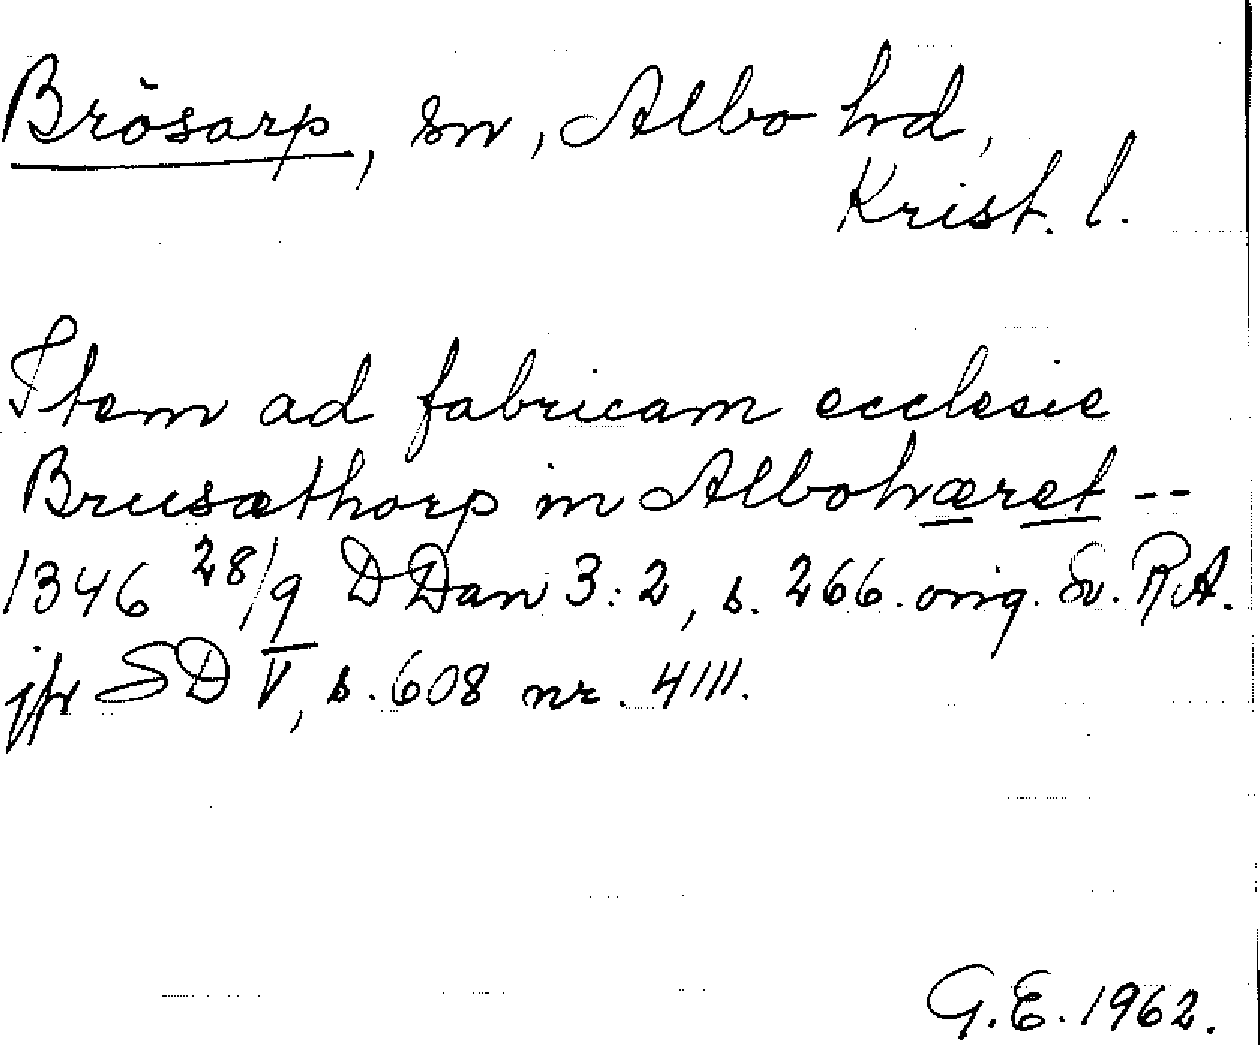 Brösarp, sn, Albo hd,
Krist. l.
Item ad fabricam ecclesie
Brusæthorp in Albohæret --
1346 28/9 DDan 3:2, s. 266. orig. Sv. R.A.
jfr SD V, s. 608 nr. 4111.
G.E. 1962.